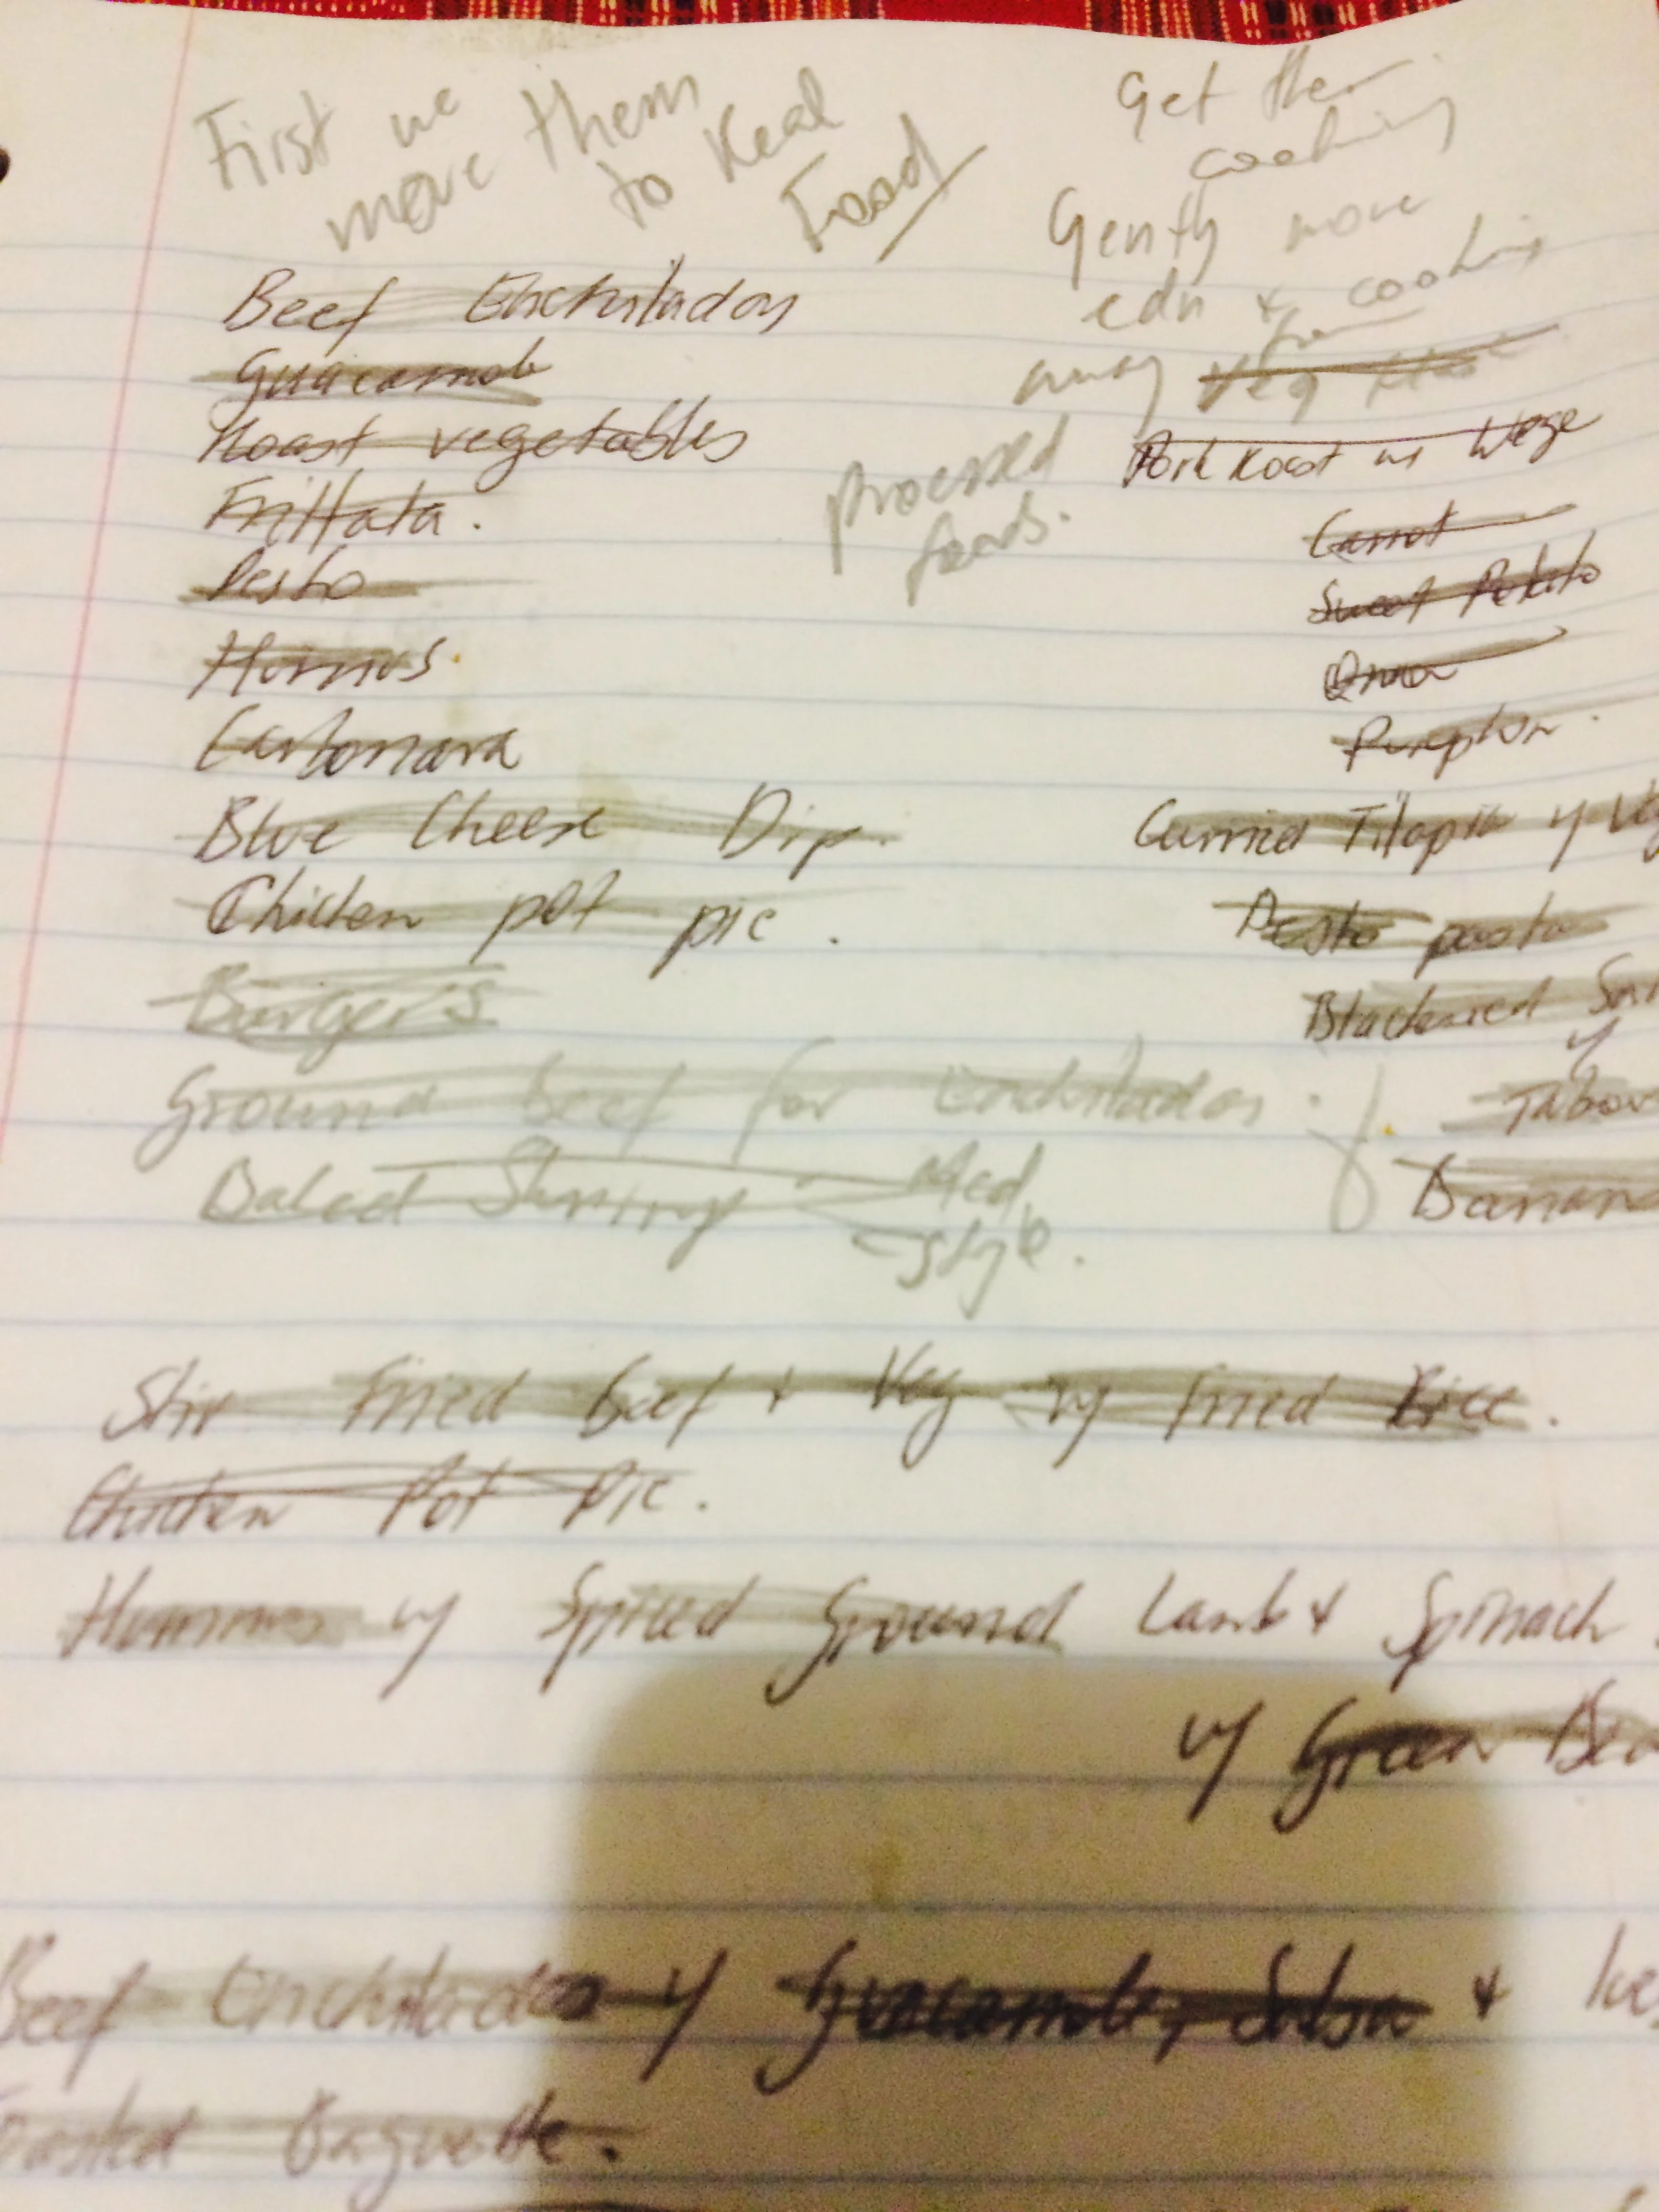 First we
move them
to Real
Food
Beef Enchiladas
Guacamole
Roast vegetables
Frittata.
Pesto
Humus.
Carbonara
Blue Cheese Dip.
Chicken pot pie.
Burgers
Ground beef for Enchiladas.
Baked Shrimp - Med
style.
Get the
cooking
Gently move
edu & cooking
away from
Veg
processed
foods.
Pork Roast w
Carrot
Sweet Potato
Onion
Pumpkin.
Curried Tilapia w/ Veg
Pesto pasta
Blackened
w/
Tabou
Banana
Stir Fried beef + Veg w/ fried Rice.
Chicken Pot Pie.
Hummus w/ Spiced Ground Lamb & Spinach
w/ Green Bea
Beef Enchiladas w/ Guacamole, Salsa &
Toasted Baguette.